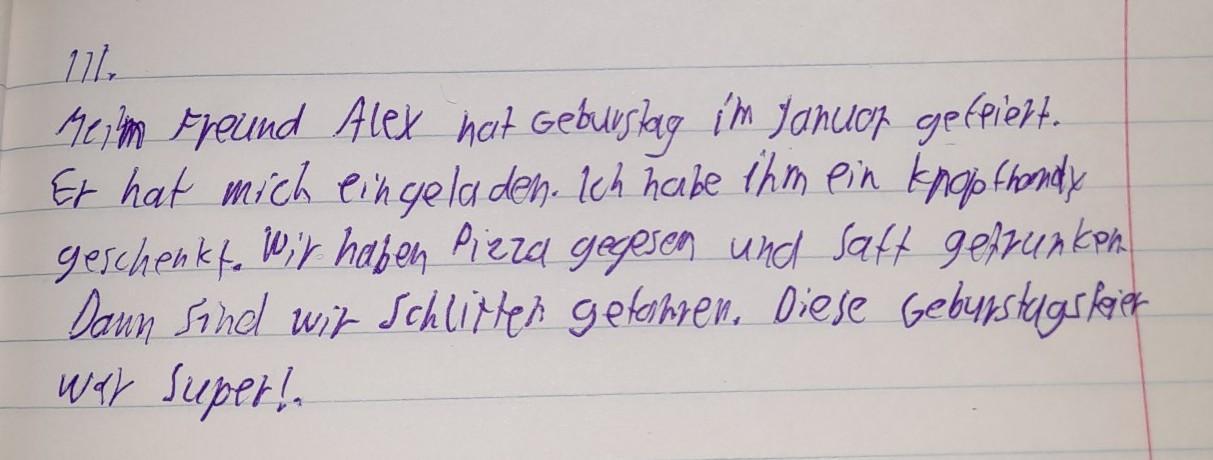 III.
Meim Freund Alex hat Geburstag im Januar gefeiert.
Er hat mich eingeladen. Ich habe ihm ein Knopfhandy
geschenkt. Wir haben Pizza gegesen und Saft getrunken
Dann Sind wir Schlitten gefahren. Diese Geburstagsfeier
war Super!.